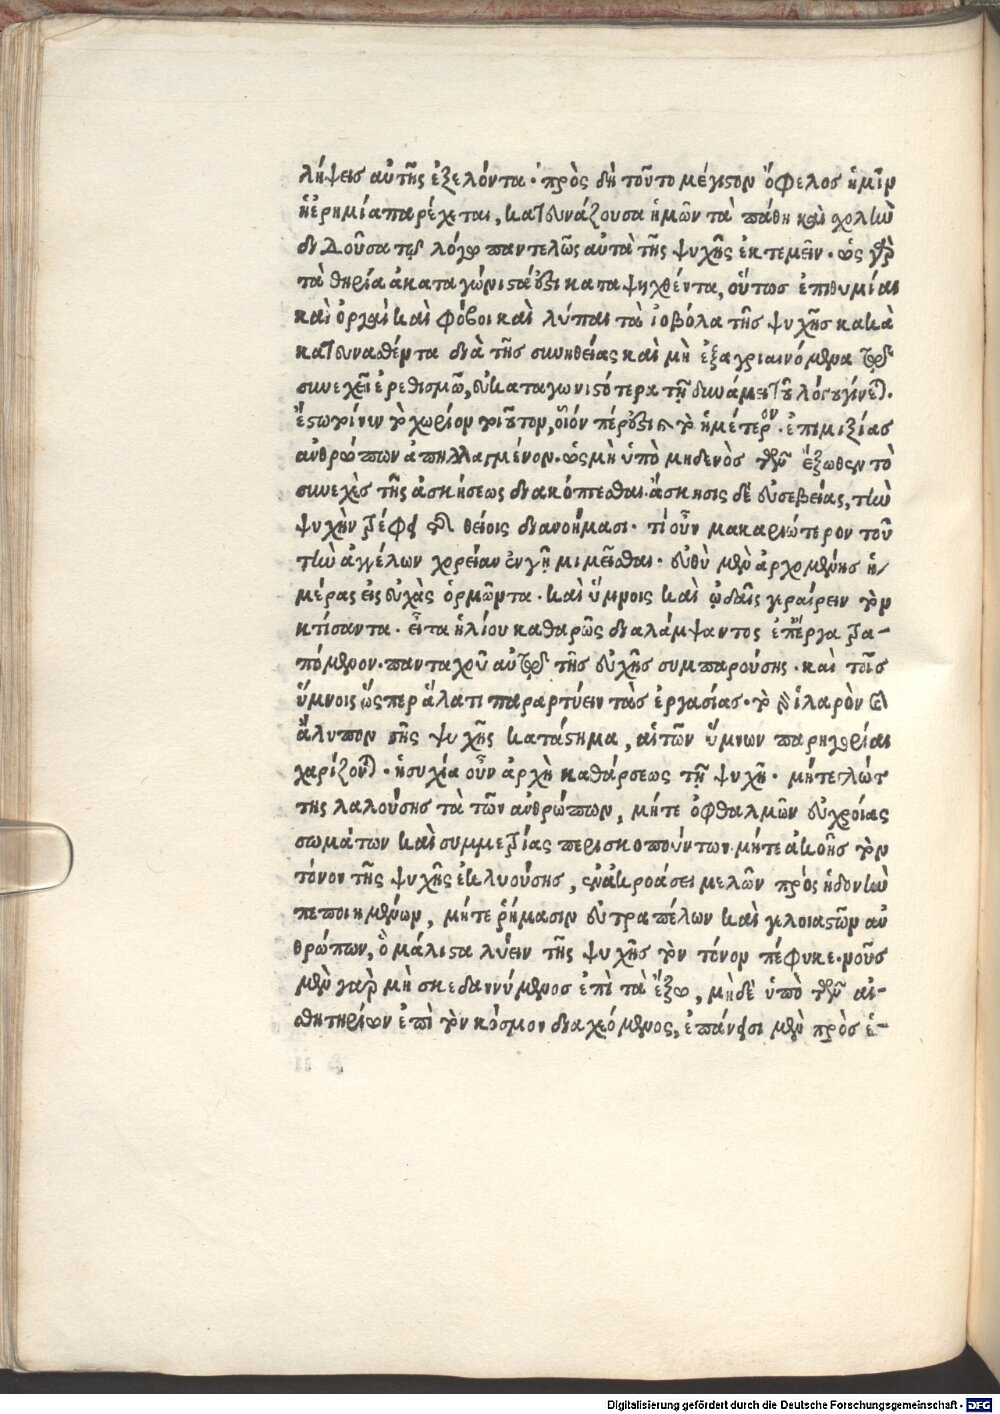 λήψεις αὐτῆς ἐξελόντα· πρὸς δὴ τοῦτο μέγιστον ὄφελος ἡμῖν
ἡ ἐρημία παρέχεται, κατευνάζουσα ἡμῶν τὰ πάθη καὶ σχολὴν
διδοῦσα τῷ λόγῳ παντελῶς αὐτὰ τῆς ψυχῆς ἐκτεμεῖν· ὡς γὰρ
τὰ θηρία ἀκαταγώνιστά ἐστι καταψηχθέντα, οὕτως ἐπιθυμίαι
καὶ ὀργαὶ καὶ φόβοι καὶ λύπαι τὰ ἰοβόλα τῆς ψυχῆς κακὰ
κατευνασθέντα διὰ τῆς συνηθείας καὶ μὴ ἐξαγριαινόμενα τῷ
συνεχεῖ ἐρεθισμῷ, εὐκαταγωνιστότερα τῇ δυνάμει τοῦ λόγου γίνεται.
ἔστω τοίνυν τὸ χωρίον τοιοῦτον, οἷόν πέρ ἐστι καὶ τὸ ἡμέτερον· ἐπιμιξίας
ἀνθρώπων ἀπηλλαγμένον· ὡς μὴ ὑπὸ μηδενὸς τῶν ἔξωθεν τὸ
συνεχὲς τῆς ἀσκήσεως διακόπτεσθαι· ἄσκησις δὲ εὐσεβείας, τὴν
ψυχὴν τρέφει τοῖς θείοις διανοήμασι· τί οὖν μακαριώτερον τοῦ
τὴν ἀγγέλων χορείαν ἐν γῇ μιμεῖσθαι· εὐθὺ μὲν ἀρχομένης ἡ/
μέρας εἰς εὐχὰς ὁρμῶντα· καὶ ὕμνοις καὶ ᾠδαῖς γεραίρειν τὸν
κτίσαντα· εἶτα ἡλίου καθαρῶς διαλάμψαντος ἐπ' ἔργα τρα-
πόμενον· πανταχοῦ αὐτῷ τῆς εὐχῆς συμπαρούσης· καὶ τοῖς
ὕμνοις ὥσπερ ἅλατι παραρτύειν τὰς ἐργασίας· τὸ γὰρ ἱλαρὸν καὶ
ἄλυπον τῆς ψυχῆς κατάστημα, αἱ τῶν ὕμνων παρηγορίαι
χαρίζονται· ἡσυχία οὖν ἀρχὴ καθάρσεως τῇ ψυχῇ· μήτε γλώτ
της λαλούσης τὰ τῶν ἀνθρώπων, μήτε ὀφθαλμῶν εὐχροίας
σωμάτων καὶ συμμετρίας περισκοπούντων· μήτε ἀκοῆς τὸν
τόνον τῆς ψυχῆς ἐκλυούσης, ἐν ἀκροάσει μελῶν πρὸς ἡδονὴν
πεποιημένων, μήτε ῥήμασιν εὐτραπέλων καὶ γελοιαστῶν ἀν
θρώπων, ὃ μάλιστα λύειν τῆς ψυχῆς τὸν τόνον πέφυκε· νοῦς
μὲν γὰρ μὴ σκεδαννύμενος ἐπὶ τὰ ἔξω, μηδὲ ὑπὸ τῶν αἰ-
σθητηρίων ἐπὶ τὸν κόσμον διαχεόμενος, ἐπάνεισι μὲν πρὸς ἑ-